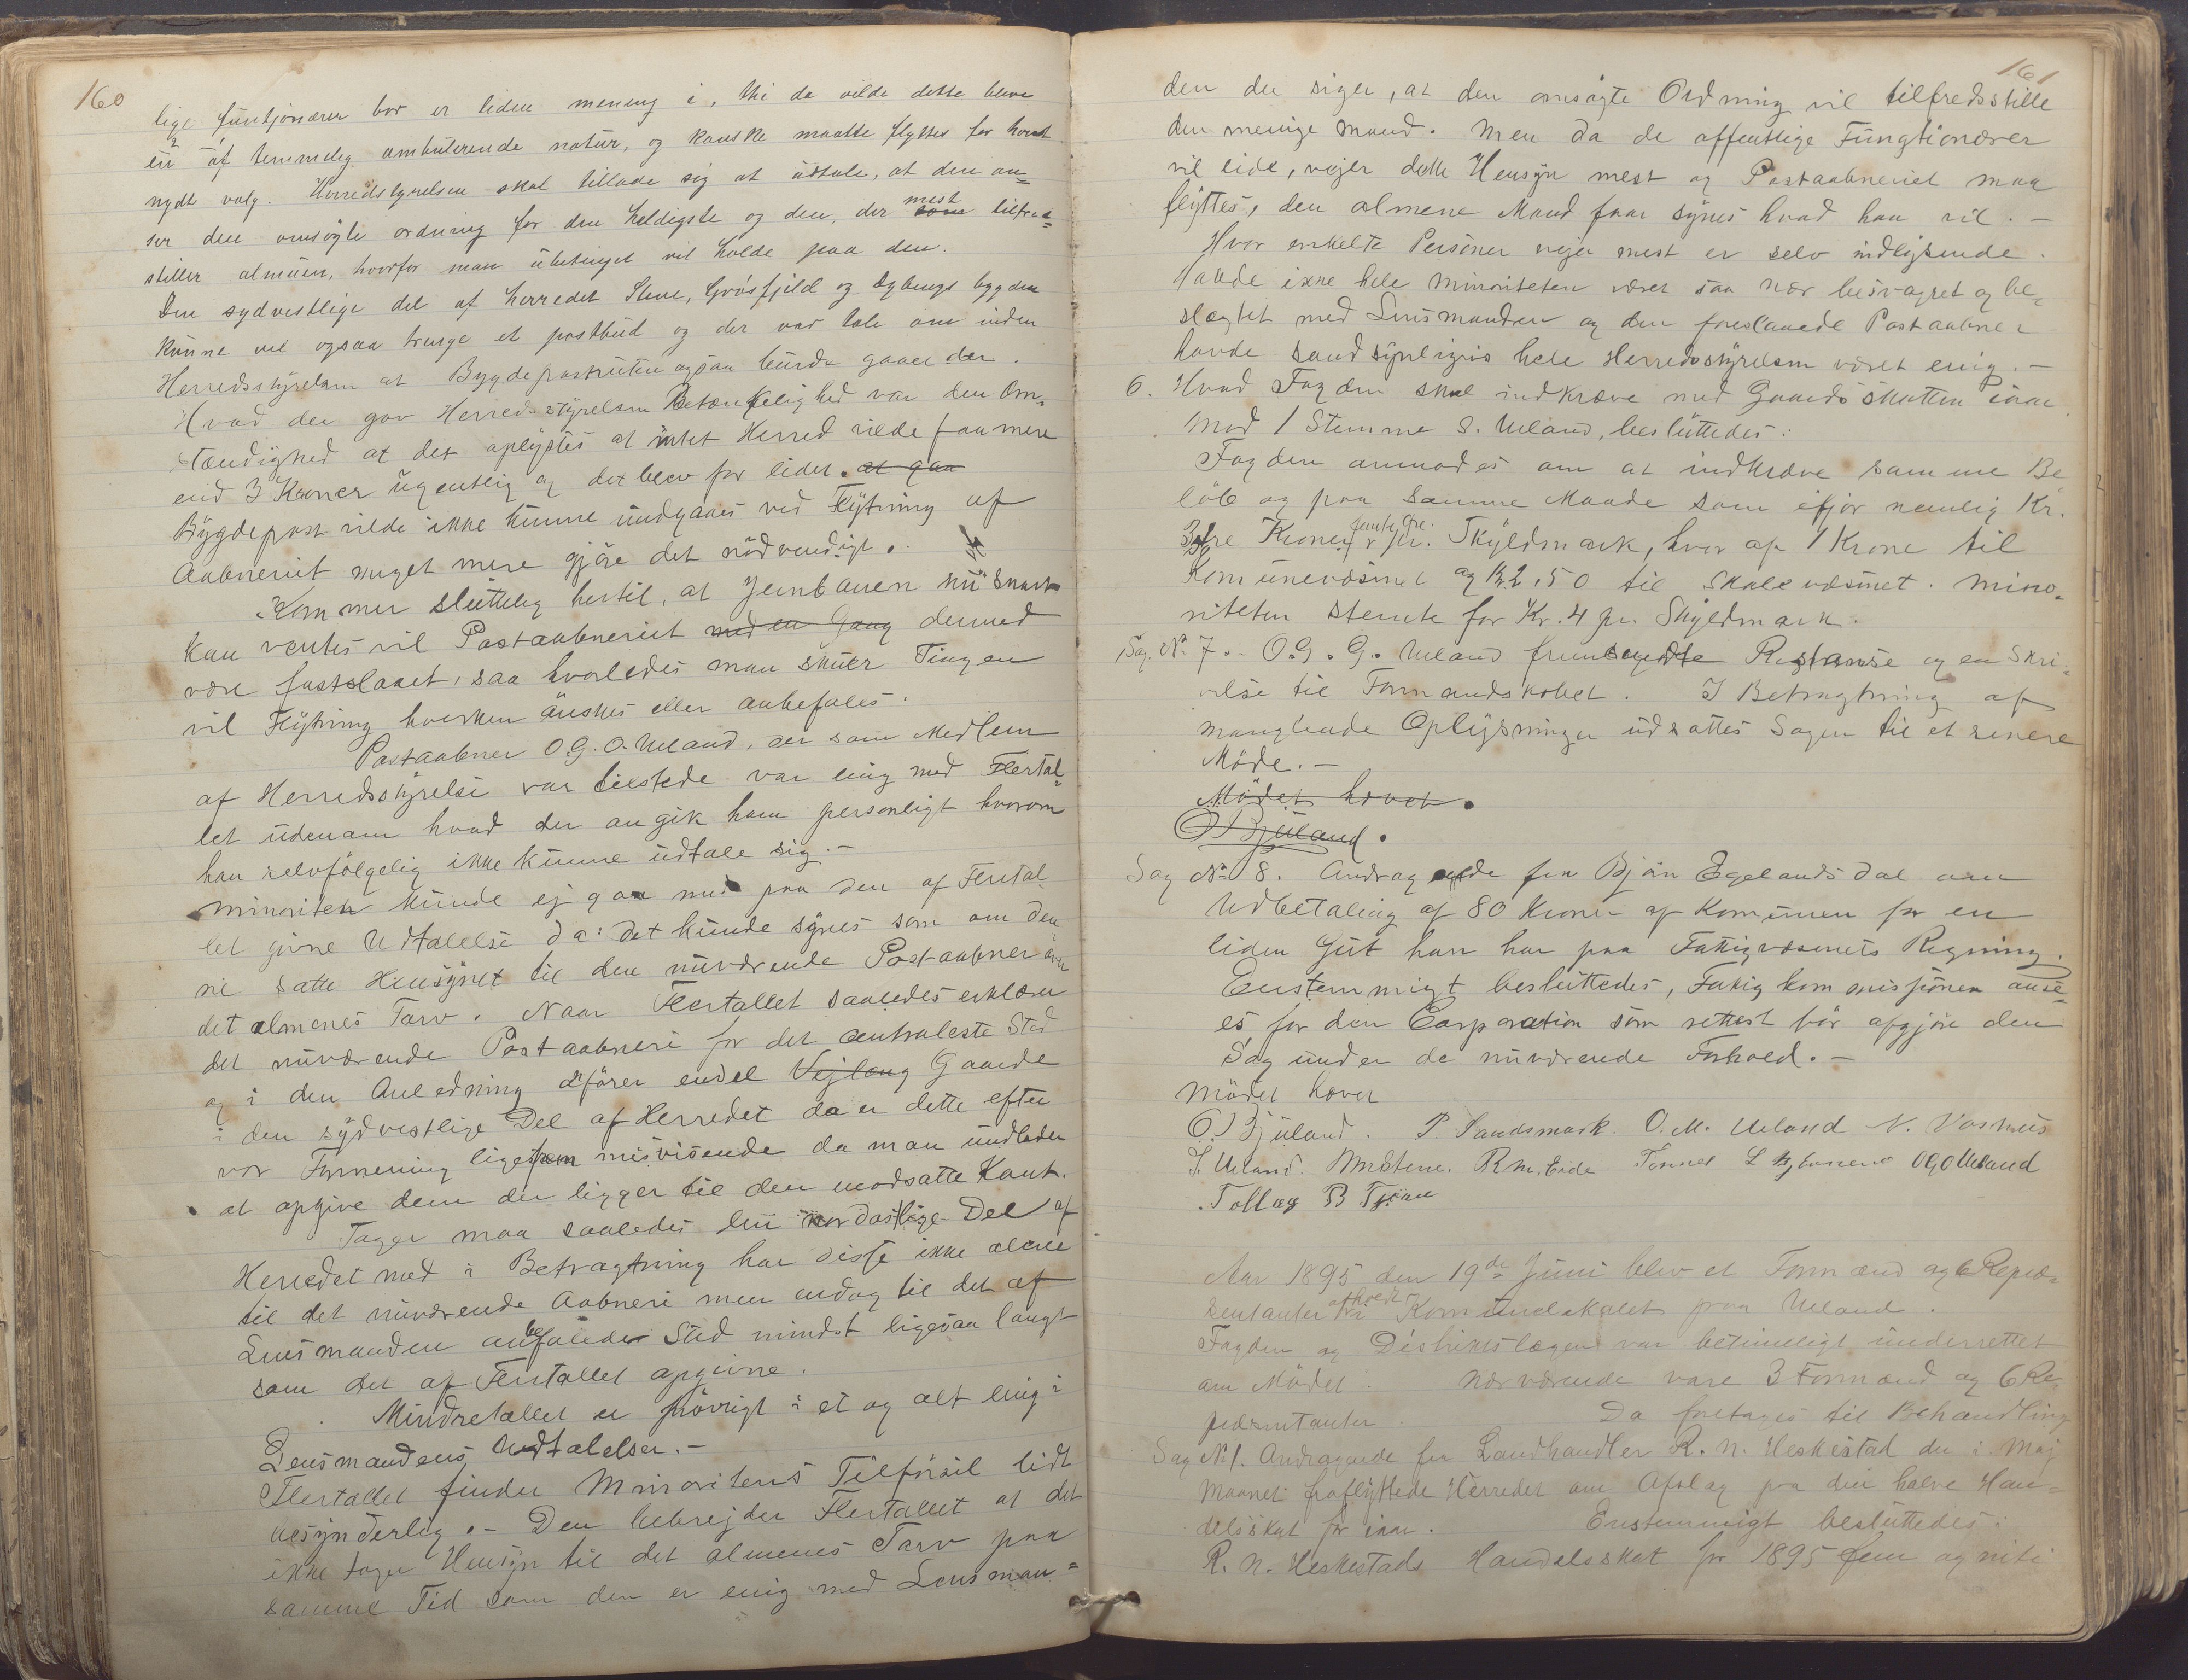 160
lige funtjonærer bor er liden mening i, thi da vilde dette bleve
en af temmelig ambulerende natur, og kanske maatte flyttes for hvert
nydt valg. Herredstyrelsen skal tillade sig at udtale, at den an=
ser den omsøgte ordning for den heldigste og den, der som mest tilfred=
stiller almuen, hvorfor man ubetinget vil holde paa den.
Den sydvestlige del af herredet Stene, Grøsfjeld og Dybings bygden
kunne vel ogsaa trenge et postbud og der var tale om inden
Herredsstyrelsen at Bygdepostruten ogsaa burde gaaet der.
Hvad der gav Herredsstyrelsen Betænkelighed var den Om=
stændighed at det oplystes at intet Herred vilde faa mere
end 3 Kroner ugentlig og det blev for lidet. at gaa
Bygdepost vilde ikke kunne undgaaes ved Flytning af
Aabneriet meget mere gjøre det nødvendigt.
Kommer sluttelig hertil, at Jernbanen nu snart
kan ventes vil Postaabneriet med en Gang dermed
være fastslaaet, saa hvorledes man skuer Tingen
vil Flytning hverken ønskes eller anbefales.
Postaabner O.G.O. Ueland, der som Medlem
af Herredsstyrelse var tilstede var enig med Flertal=
let udenom hvad der angik ham personligt hvorom
han selvfølgelig ikke kunne udtale sig.-
Minoriteten kunde ej gaa med paa den af Flertal
let givne Udtalelse da: det kunde synes som om den
vil satte Hensynet til den nuværende Postaabner over
det almenes Tarv. Naar Flertallet saaledes erklærer
det nuværende Postaabneri for det centraleste Sted
og i den Anledning anfører endel Vejlang Gaarde
i den sydvestlige Del af Herredet da er dette efter
vor Formening ligefrem misvisende da man undlader
at opgive dem der ligger til den modsatte Kant.
Tager maa saaledes hin nordøstlige Del af
Herredet med i Betragtning har disse ikke alene
til det nuværende Aabneri men endog til det af
Lensmanden anbefalede Sted mindst ligesaa langt
som det af Flertallet opgivne.
Mindretallet er forøvrigt i et og alt enig i
Lensmandens Udtalelser.-
Flertallet finder Minoritens Tilførsel lidt
besynderlig.- Den bebrejder Flertallet at det
ikke tager Hensyn til det almenes Tarv paa
samme Tid som den er enig med Lensman=
161
den der siger, at den omsøgte Ordning vil tilfredsstille
den menige Mand. Men da de offentlige Fungtionærer
vil lide, vejer dette Hensyn mest og Postaabneriet maa
flyttes, den almene Mand faar synes hvad han vil.-
Hvor enkelte Personer vejer mest er selv indlysende.
Havde ikke hele Minoriteten været saa nær besvogret og be=
slægtet med Lensmanden og den foreslaaede Postaabner
havde sandsynligvis hele Herredsstyrelsen været enig.-
6. Hvad Fogden skal indkræve med Gaardsskatten iaar
Mod 1 Stemme S. Ueland, besluttedes:
Fogden anmodes om at indkræve samme Be
løb og paa samme Maade som ifjor nemlig Kr.
3,50 tre Kroner femti Øre pr. Skyldmark, hvor af 1 Krone til
Komunevæsenet og Kr 2,50 til Skolevæsenet. Mino=
riteten stemte for Kr. 4 pr. Skyldmark.
Sag. No 7.- O.G.G. Ueland fremsendte Restanse og en Skri=
velse til Formandskabet. I Betragtning af
manglende Oplysninger udsattes Sagen til et senere
Møde.-
Mødet hævet.
O Bjuland.
Sag No 8. Andragende fra Bjørn Egelandsdal om
Udbetaling af 80 Kroner af Komunen for en
liden Gut han har paa Fattigvæsenets Regning.
Enstemmigt besluttedes, Fattigkommissjonen anse=
es for den Corporation som rettest bør afgjøre den
Sag under de nuværende Forhold.-
Mødet hævet
O. Bjuland. P. Sandsmark. O.M. Ueland N. Vashus
S. Ueland. R M. Eide Tonnes L OGO Ueland
Tollag B Tjørn
Aar 1895 den 19de Juni blev et Formænd og 6 Repræ=
sentanter afholdt i Komunelokalet paa Ueland.
Fogden og Distriktslægen var betimeligt underrettet
om Mødet. Nærværende vare 3 Formænd og 6 Re=
præsentanter. Da foretoges til Behandling
Sag No 1. Andragende fra Landhandler R.N. Heskestad der i Maj
Maaned fraflyttede Herredet om Afslag paa den halve Han=
delsskat for iaar. Enstemmigt besluttedes:
R.N. Heskestads Handelsskat for 1895 fem og niti